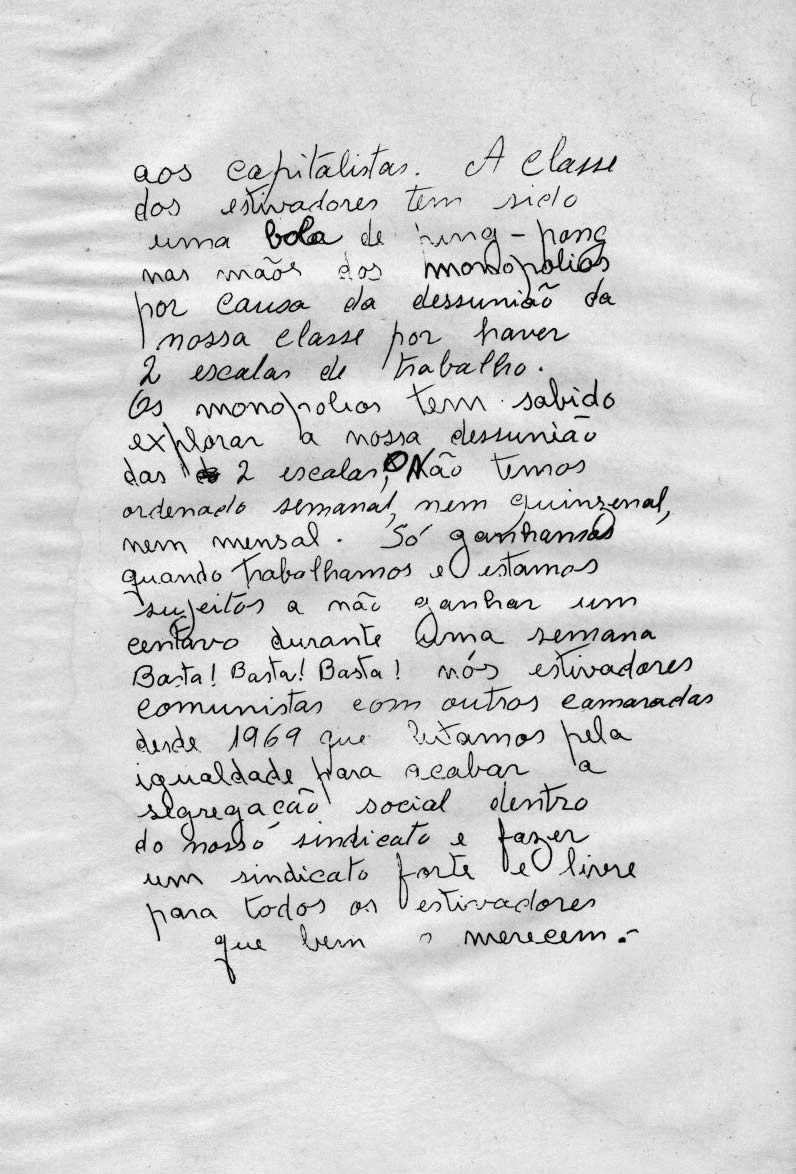 aos capitalistas. A classe
dos estivadores tem sido
uma bola de ping-pong
nas mãos dos monopolios
por causa da dessunião da
nossa classe por haver
2 escalas de trabalho.
Os monopolios tem sabido
explorar a nossa dessunião
das 2 escalas, Não temos
ordenado semanal, nem quinzenal,
nem mensal. Só ganhamos
quando trabalhamos e estamos
sujeitos a não ganhar um
centavo durante uma semana
Basta! Basta! Basta! nós estivadores
comunistas com outros camaradas
desde 1969 que lutamos pela
igualdade para acabar a
segregação social dentro
do nosso sindicato e fazer
um sindicato forte e livre
para todos os estivadores
que bem o merecem.-